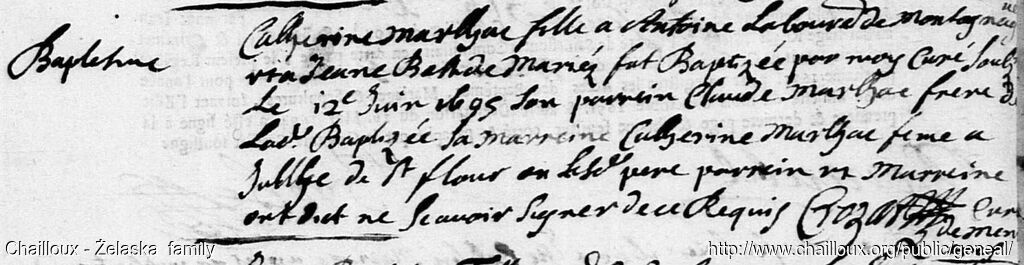 Baptesme
Catherine Marlhac fille a Antoine Laboureur de Montagnac
et a Jeanne Beth de Mariéz fut Baptizée par moy Curé Soub
Le 12e Juin 1695 Son parrein Claude Marlhac frere de
Lad. Baptizée Sa Marreine Catherine Marlhac feme a
de St flour Le sd. pere parrein et Marreine
ont dict ne Scavoir Signer de ce Requis
Chailloux - Żelaska family
http://www.chailloux.org/public/geneal/